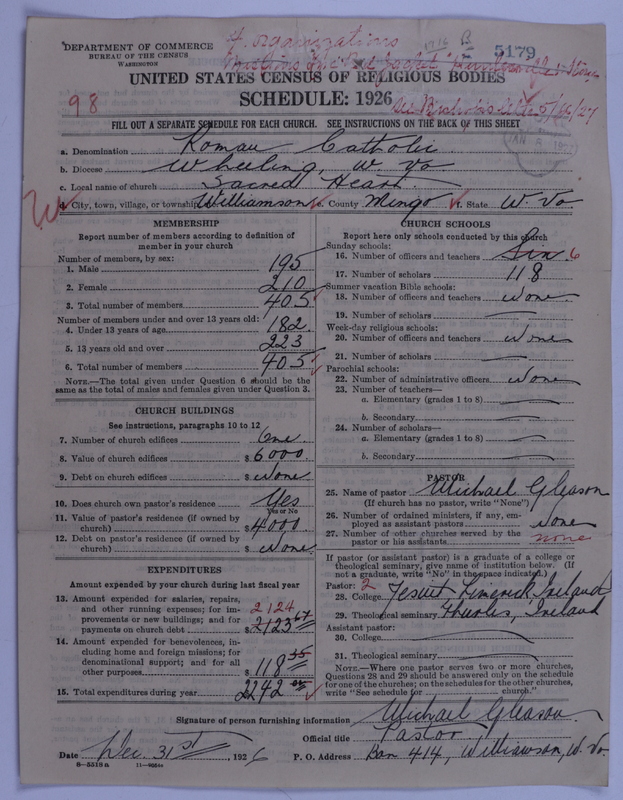 4 organizations
1916 B
5179
DEPARTMENT OF COMMERCE
BUREAU OF THE CENSUS
WASHINGTON
UNITED STATES CENSUS OF RELIGIOUS BODIES
SCHEDULE: 1926
98
FILL OUT A SEPARATE SCHEDULE FOR EACH CHURCH. SEE INSTRUCTIONS ON THE BACK OF THIS SHEET
a. Denomination Roman Catholic
b. Diocese Wheeling, W. Va
c. Local name of church Sacred Heart
d. City, town, village, or township Williamson e. County Mingo f. State W. Va
MEMBERSHIP
Report number of members according to definition of
member in your church
Number of members, by sex:
1. Male 195
2. Female 210
3. Total number of members 405
Number of members under and over 13 years old:
4. Under 13 years of age 182
5. 13 years old and over 223
6. Total number of members 405
NOTE.—The total given under Question 6 should be
same as the total of males and females given under Question 3.
CHURCH BUILDINGS
See instructions, paragraphs 10 to 12
7. Number of church edifices One
8. Value of church edifices $ 6000
9. Debt on church edifices $ None
10. Does church own pastor's residence Yes
Yes or No
11. Value of pastor's residence (if owned by
church) $ 4000
12. Debt on pastor's residence (if owned by
church) $ None
EXPENDITURES
Amount expended by your church during last fiscal year
13. Amount expended for salaries, repairs,
and other running expenses; for im-
provements or new buildings; and for
payments on church debt $ 2123 67
2124
14. Amount expended for benevolences, in-
cluding home and foreign missions; for
denominational support; and for all
other purposes $ 118 35
15. Total expenditures during year $ 2242
CHURCH SCHOOLS
Report here only schools conducted by this church
Sunday schools:
16. Number of officers and teachers Six 6
17. Number of scholars 118
Summer vacation Bible schools:
18. Number of officers and teachers None
19. Number of scholars —
Week-day religious schools:
20. Number of officers and teachers None
21. Number of scholars —
Parochial schools:
22. Number of administrative officers None
23. Number of teachers—
a. Elementary (grades 1 to 8) —
b. Secondary —
24. Number of scholars—
a. Elementary (grades 1 to 8) —
b. Secondary —
PASTOR
25. Name of pastor Michael Gleason
(If church has no pastor, write "None")
26. Number of ordained ministers, if any, em-
ployed as assistant pastors None
27. Number of other churches served by the
pastor or his assistants none
If pastor (or assistant pastor) is a graduate of a college or
theological seminary, give name of institution below. (If
not a graduate, write "No" in the space indicated.)
Pastor: 2
28. College Jesuit Limerick Ireland
29. Theological seminary Thurles, Ireland
Assistant pastor:
30. College —
31. Theological seminary —
NOTE.—Where one pastor serves two or more churches,
Questions 28 and 29 should be answered only on the schedule
for one of the churches; on the schedules for the other churches,
write "See schedule for church."
Signature of person furnishing information Michael Gleason
Official title Pastor
Date Dec. 31st, 1926 P. O. Address Box 414, Williamson, W. Va
8—5518a 11—9054